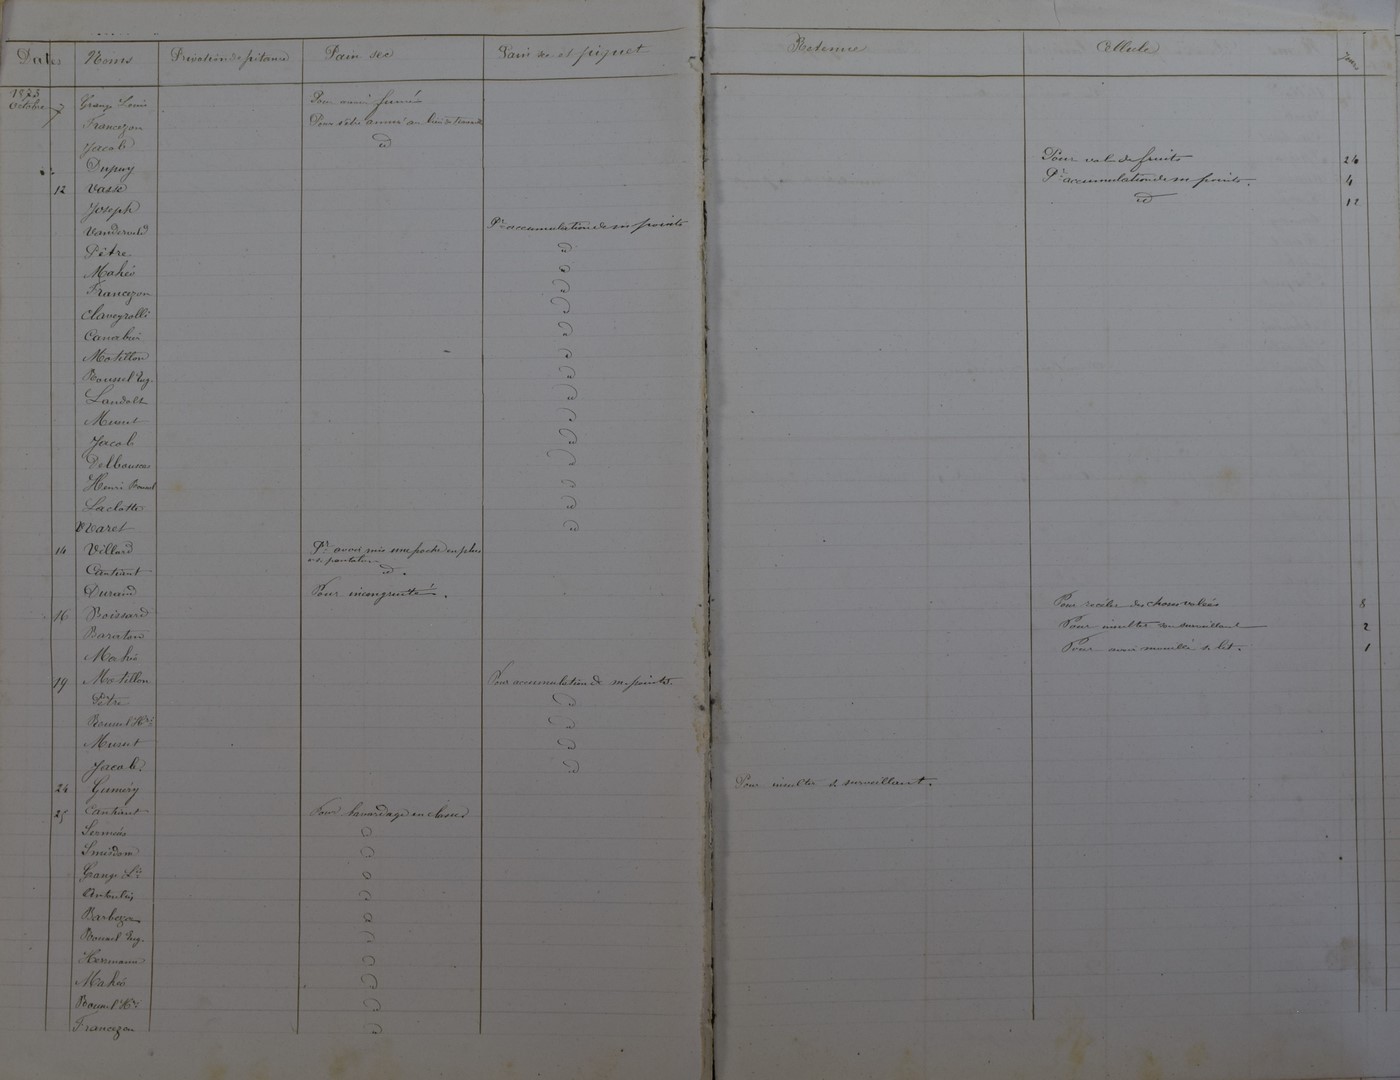 Dates Noms Privation de pitance Pain sec Pain sec et piquet Retenue Cellule Jours
1873
Octobre 7 Grange Louis Pour avoir fumé
Francezon
Jacob id
Dupuy Pour vol de fruits 24
12 Vasse Pr accumulation de m points. 4
Joseph id 12
Vanderveld Pr accumulation de m points
Pêtre id
Mahéo id
Francezon id
Claveyrolli id
id
Motillon id
Bonnel Eug. id
Landolt id
id
Jacob id
Delbousses id
Henri Bonnel id
Laclotte id
Maret id
14 Villard Pr avoir mis une poche en plus
au pantalon
Cantiant id.
Durand Pour incongruité.
16 Boissard Pour recéler des choses volées 8
Baraton Pour insultes au surveillant 2
Mahéo Pour avoir mouillé le lit. 1
19 Motillon Pour accumulation de m. points.
Pêtre id
Bonnel Hri id
id
Jacob. id
24 Guméry Pour insultes au surveillant.
25 Cantiant Pour bavardage en classe
id
id
Grange Ls id
id
Barbeza id
Bonnel Eug. id
Herrmann id
Mahéo id
Bonnel Hri id
Francezon id